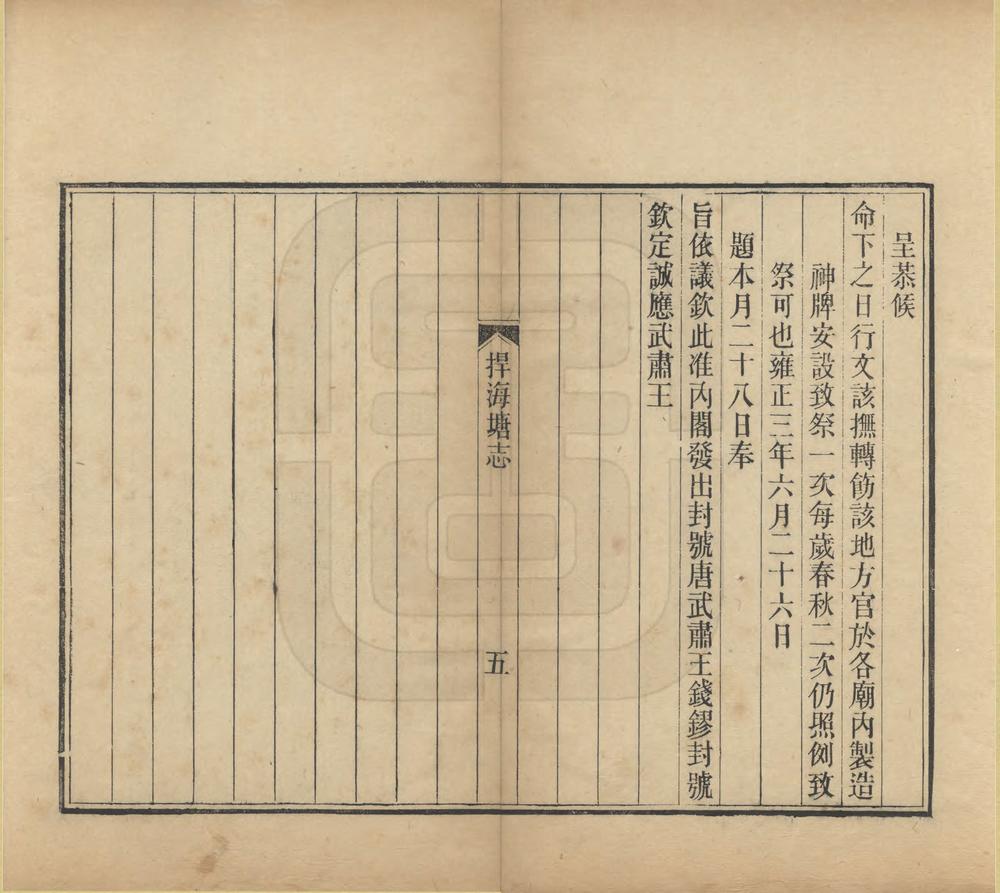 呈恭候
命下之日行文該撫轉飭該地方官於各廟內製造
神牌安設致祭一次每歲春秋二次仍照例致
祭可也雍正三年六月二十六日
題本月二十八日奉
旨依議欽此准內閣發出封號唐武肅王錢鏐封號
欽定誠應武肅王
捍海塘志
五